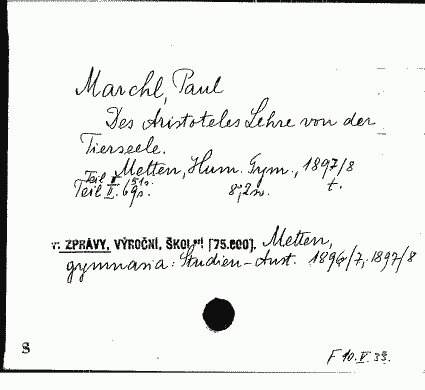 Marchl, Paul
Des Aristoteles Lehre von der
Tierseele.
Metten, Hum. Gym., 1897/8
Teil I. 51s.
Teil II. 69s. 8°, 2 sv. t.
v: ZPRÁVY, VÝROČNÍ, ŠKOLNÍ [75.600]. Metten,
gymnasia: Studien-Anst. 1896/7, 1897/8
S
F 10.V.33.